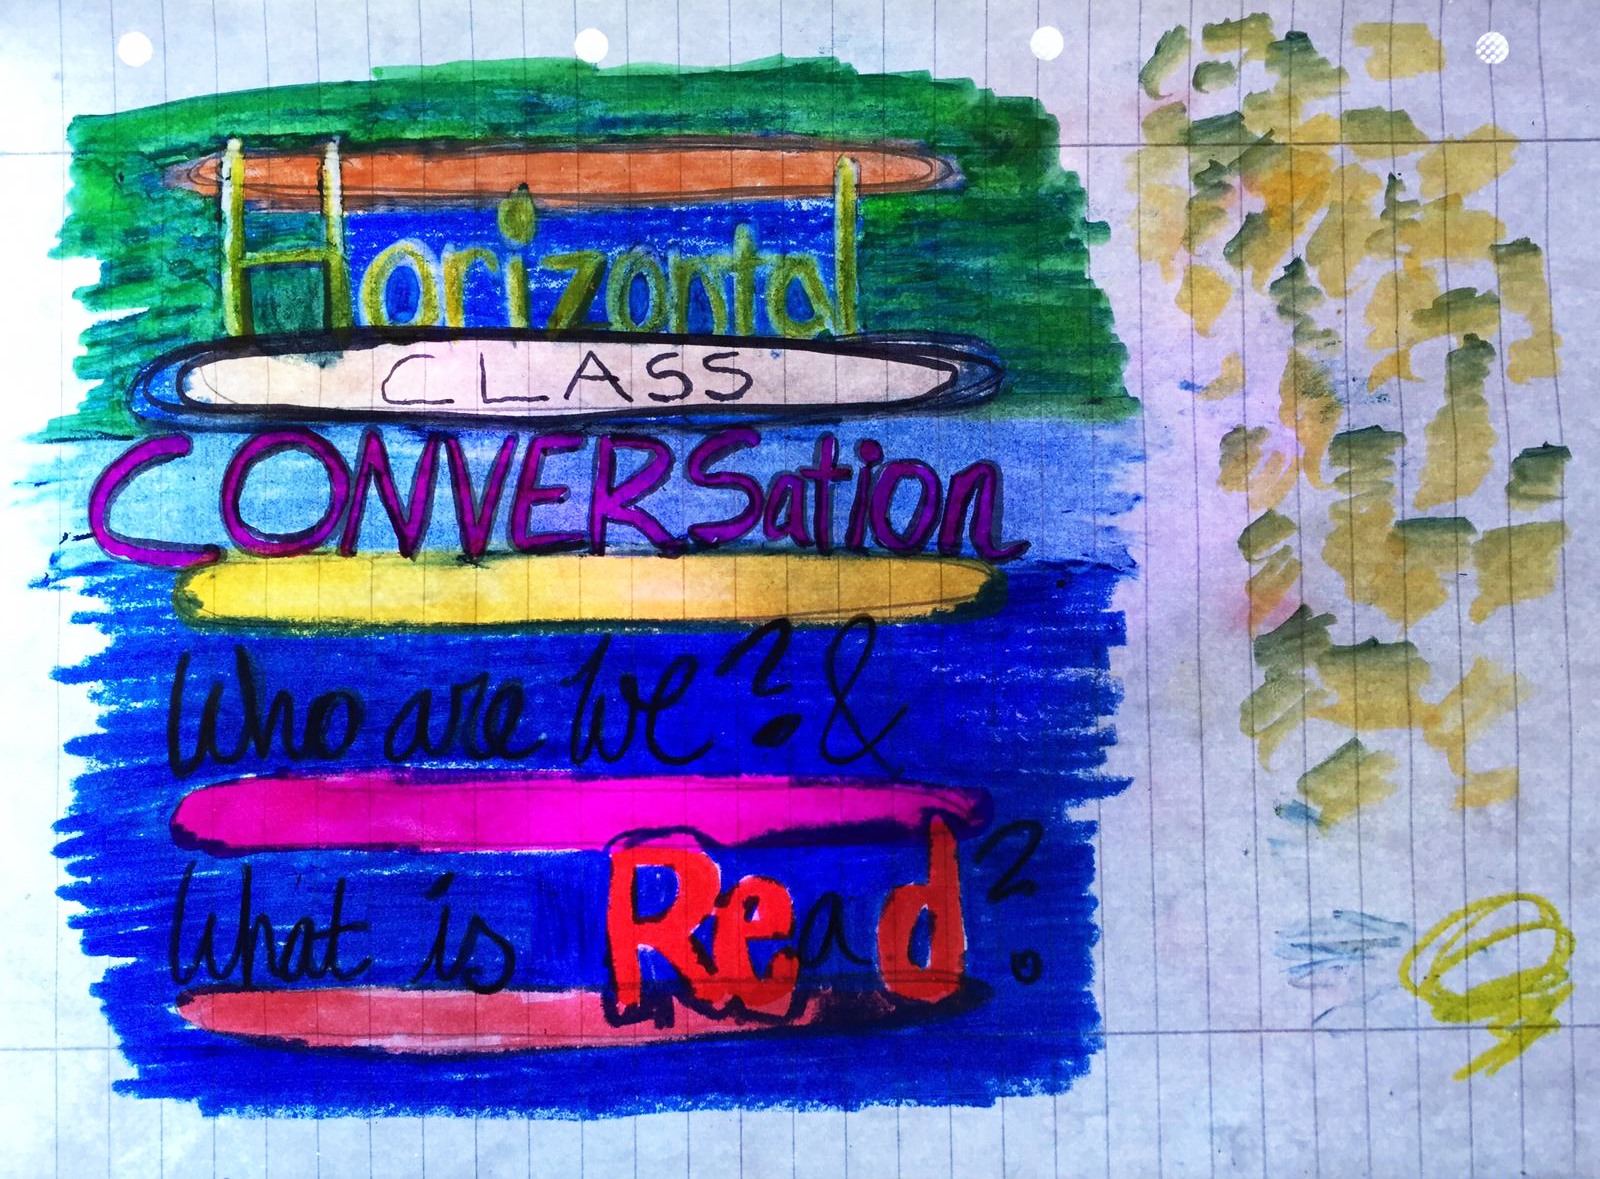 Horizontal
CLASS
CONVERSation
Who are We? &
What is Read?